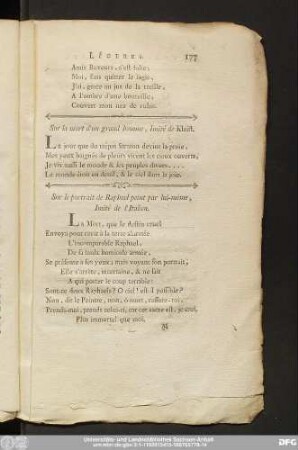 LÉGERES. 177
Amis Buveurs, c'est folie;
Moi, sans quitter le logis,
J'ai, grace au jus de la treille,
A l'ombre d'une bouteille,
Couvert mon nez de rubis.
Sur la mort d'un grand homme, Imité de Kleist.
LE jour que du trépas Sermon devint la proie,
Mes yeux baignés de pleurs virent les cieux ouverts,
Je vis aussi le monde & les peuples divers....
Le monde étoit en deuil, & le ciel dans la joie.
Sur le portrait de Raphael peint par lui-même,
Imité de l'Italien.
LA Mort, que le destin cruel
Envoya pour ravir à la terre
L'incomparable Raphael,
De sa faulx homicide armée,
Se présente à ses yeux; mais voyant son portrait,
Elle s'arrête, incertaine, & ne sait
A qui porter le coup terrible:
Sont-ce deux Raphaels? O ciel! est-il possible?
Non, dit le Peintre, non, ô mort, rassure-toi,
Prends-moi, prends celui-ci, car cet autre est, je crois,
Plus immortel que moi.
Universitäts- und Landesbibliothek Sachsen-Anhalt